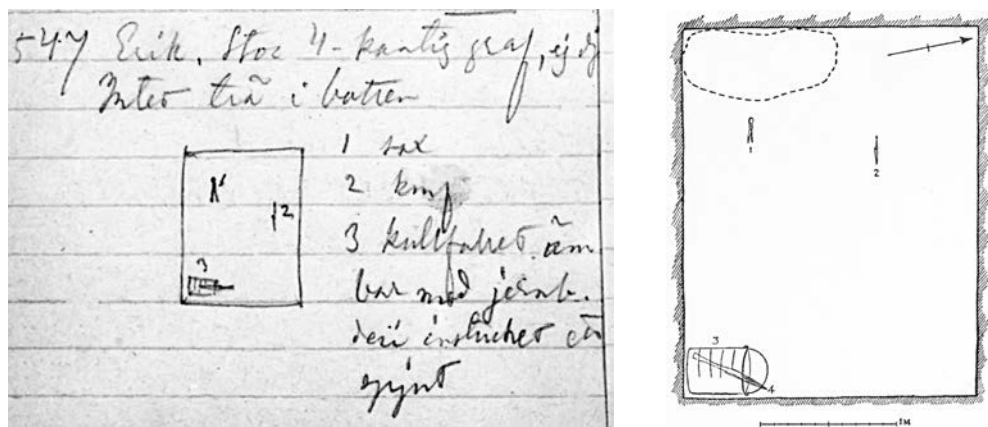 547 Erik. Stor 4-kantig graf, ej dj
Intet trä i botten
1 sax
2 knif
3 kullfallet äm
bar med jernb.
deri instucket ett
spjut
1
2
3
1
2
3
4
1 M